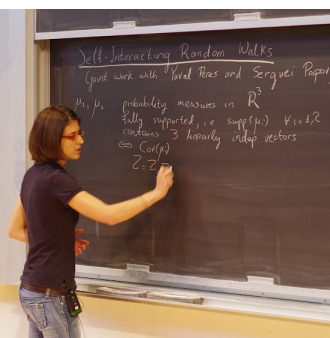 Self-Interacting Random Walks
(joint work with Yuval Peres and Serguei Popov
μ₁, μ₂ probability measures in ℝ³
fully supported, i.e. supp(μᵢ) ∀ i=1,2
contains 3 linearly indep vectors
⇔ Cov(μᵢ)